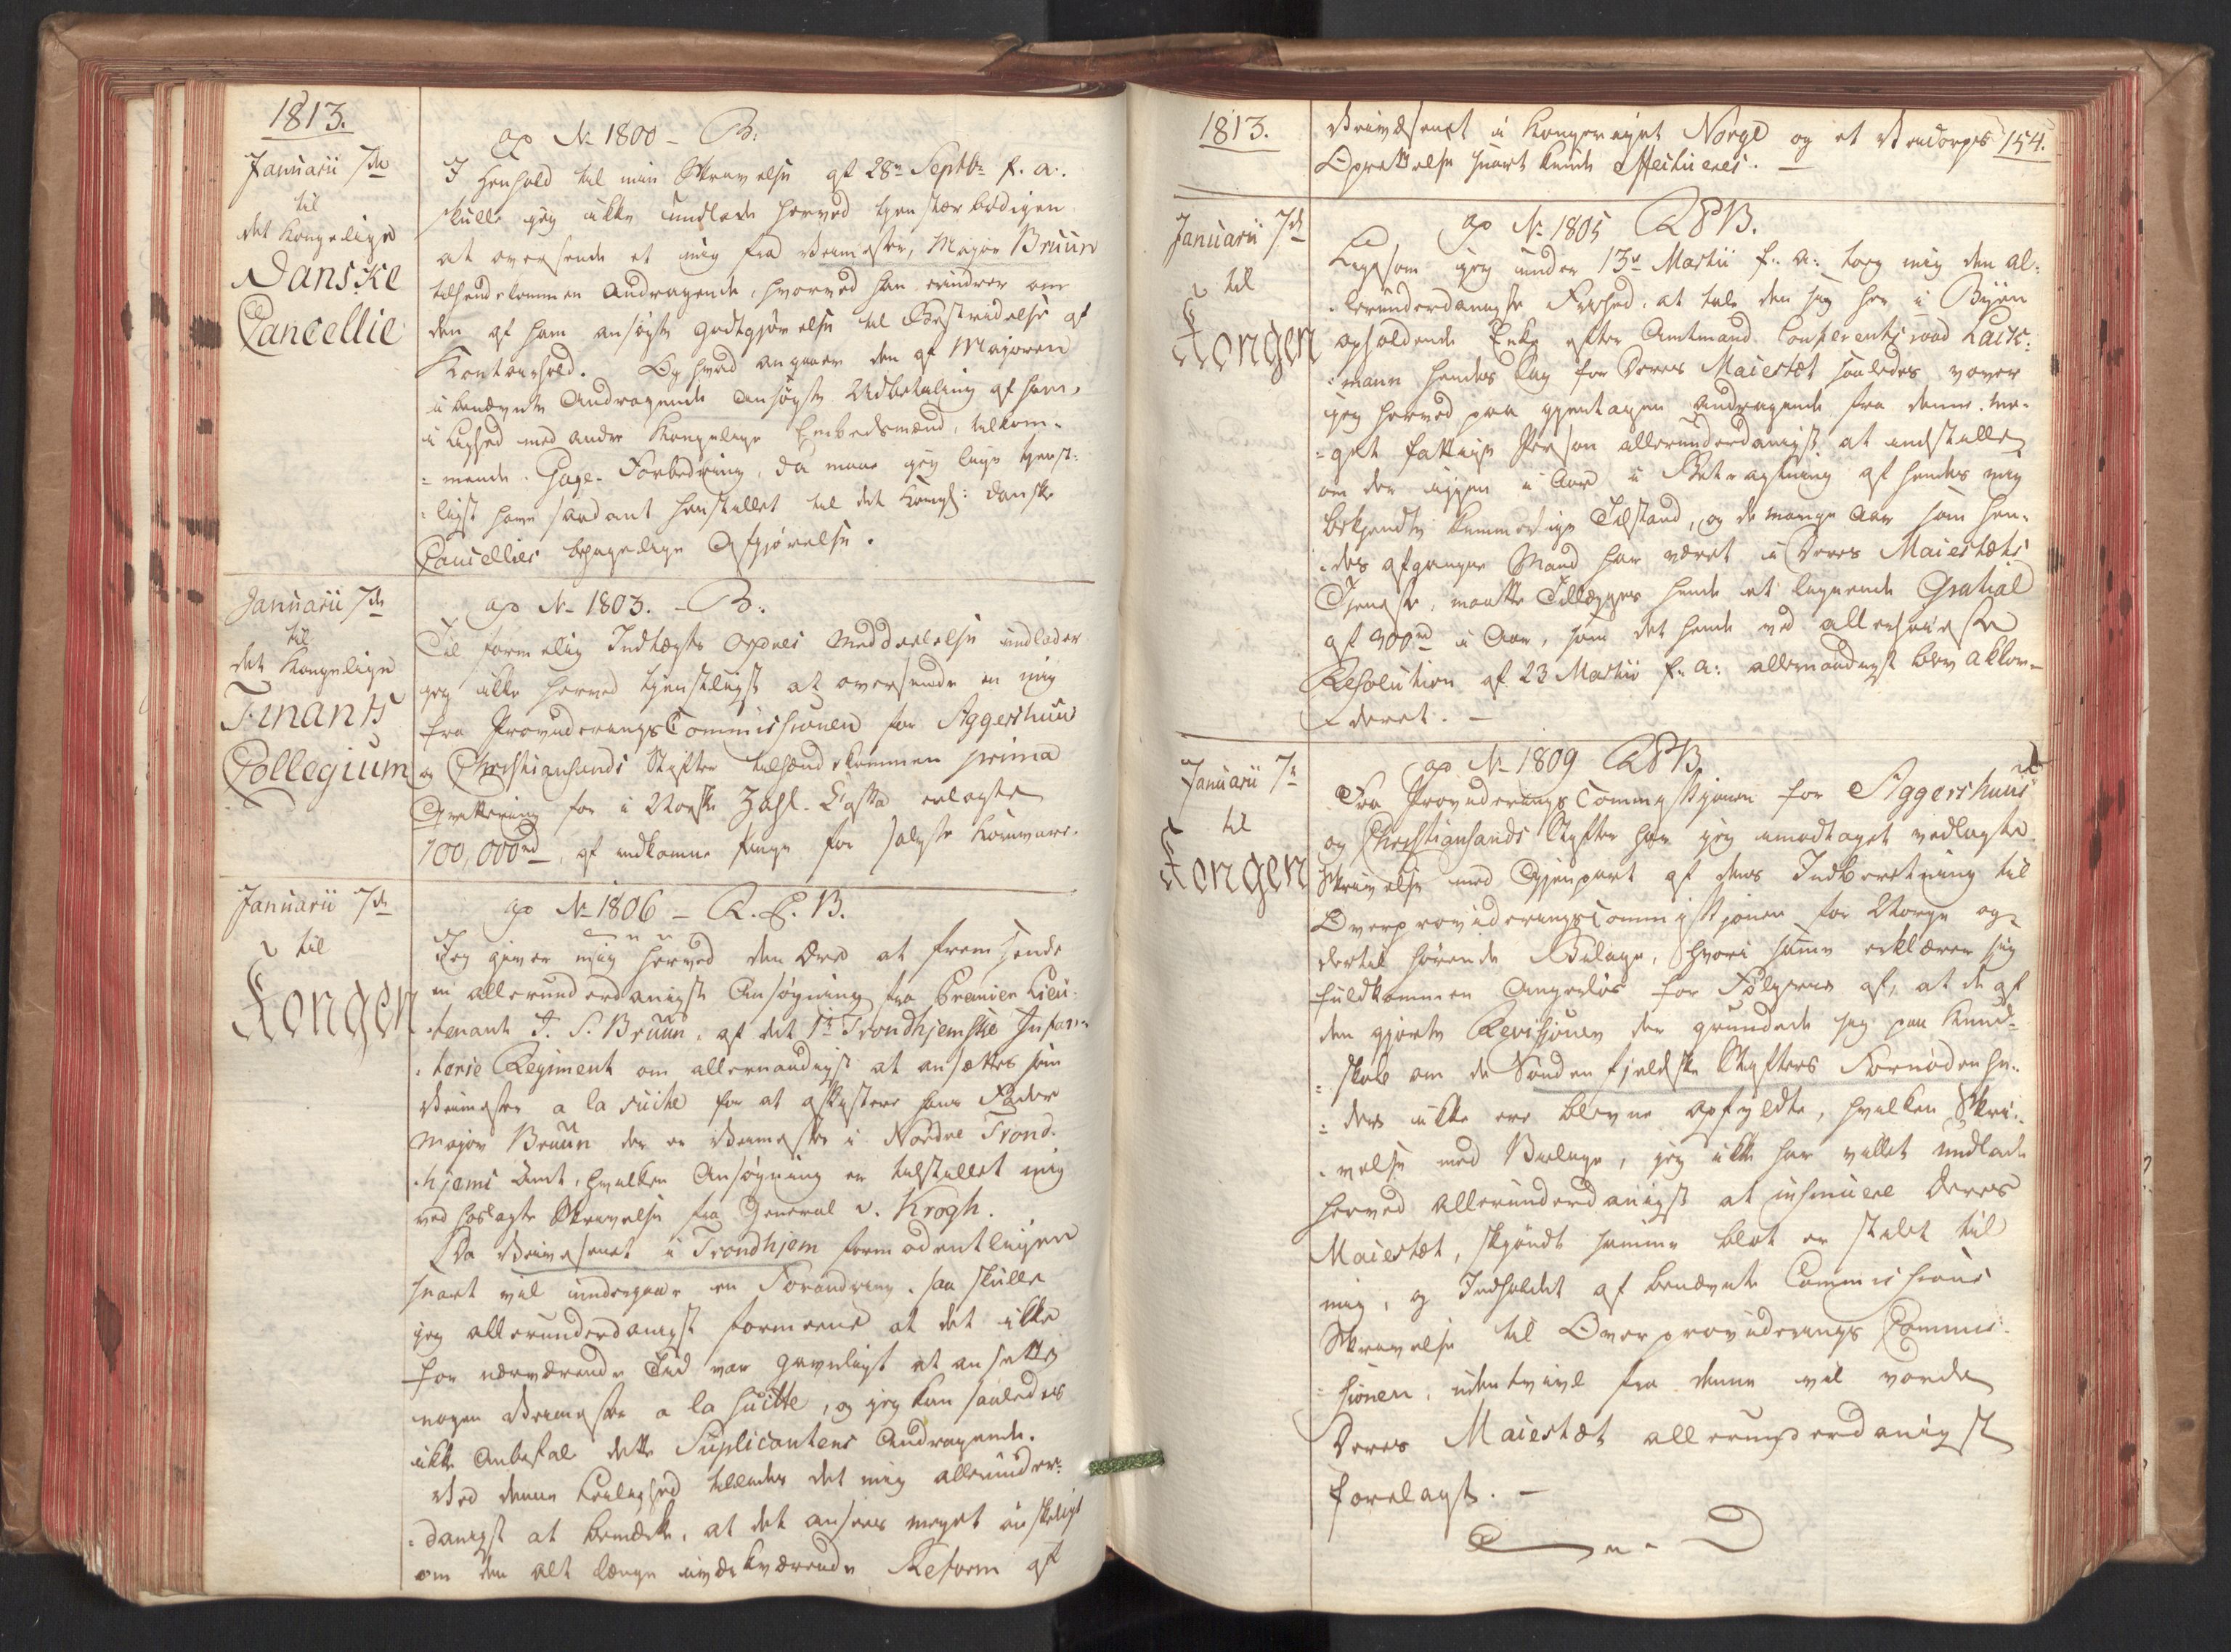 1813.
Januarii 7de
til
det Kongelige
Danske
Cancellie
ap No 1800 - B:
I Henhold til min Skrivelse af 28de Septbr f. a.
skulle jeg ikke undlade herved tjenstærbødigen
at oversende et mig fra Veimester, Major Bruun
tilhændekommen Andragende, hvorved han erindrer om
den af ham ansøgte Godtgjørelse til Bestridelse af
Kontoirhold. Og hvad angaaer den af Majoren
i benævnte Andragende ansøgte Udbetaling af ham,
i Liighed med andre Kongelige Embedsmænd, tilkom-
=mende Gage-Forbedring, da maae jeg lige tjenst-
=ligst have saadant henstillet til det Kongel: danske
Cancellies behagelige Afgjørelse.
Januarii 7de
til
det Kongelige
Finants
Collegium
ap No 1803. - B.
Til formelig Indtægts Ordres Meddeelelse undlader
jeg ikke herved tjenstligst at oversende en mig
fra ProvideringsCommissionen for Aggershuus
og Christiansands Stifter tilhændekommen prima
Qvittering for i Norske Zahl-Cassa erlagte
100,000 rd, af indkomne Penge for solgte Kornvare.
Januarii 7de
til
Kongen
ap No 1806 - R. P. B.
Jeg giver mig herved den Ære at fremsende
en allerunderdanigst Ansøgning fra Premier Lieu-
tenant J. S. Bruun, af det 1te Trondhjemske Infan-
terie Regiment om allernaadigst at ansættes som
Veimester a la suite for at assistere hans Fader
Major Bruun der er Veimester i Nordre Trond-
hjems Amt, hvilken Ansøgning er tilstillet mig
ved hoslagte Skrivelse fra General v. Krogh.
Da Veivæsenet i Trondhjem formodentligen
snart vil undergaae en Forandring, saa skulle
jeg allerunderdanigst formeene at det ikke
for nærværende Tid var gavnligt at ansette
nogen Veimester a la suitte, og jeg kan saaledes
ikke anbefale dette Suplicantens Andragende.
Ved denne Leilighed tillades det mig allerunder-
=danigst at bemærke, at det ansees meget ønskeligt
om den alt længe iværkværende Reform af
1813.
154.
Veivæsenet i Kongeriget Norge og et Veicorpses
Oprettelse snart kunde effectueres. -
Januarii 7de
til
Kongen
ap No 1805 RPB.
Ligesom jeg under 13de Martii f. a. tog mig den al-
lerunderdanigste Friehed, at tale den sig her i Byen
opholdende Enke efter Amtmand Conferentsraad
mann hendes Sag for Deres Maiestæt saaledes vover
jeg herved paa gjentagen Andragende fra denne me-
=get fattige Person allerunderdanigst at indstille,
om der igjen i Aar i Betragtning af hendes mig
bekjendte kummerlige Tilstand, og de mange Aar som hen-
des afgangne Mand har været i Deres Maiestæts
Tjeneste, maatte Tillægges hende et lignende Gratial
af 400 rd i Aar, som det hende ved allerhøieste
Resolution af 23 Martii f. a. allernaadigst blev akkor-
deret. -
Januarii 7de
til
Kongen
ap No 1809 RPB.
Fra ProvideringsCommissionen for Aggershuus
og Christiansands Stifter har jeg modtaget vedlagte
Skrivelse med Gjenpart af dens Indberetning til
OverprovideringsCommissionen for Norge og
dertil hørende Bilage, hvori samme erklærer sig
fuldkommen Angerløs for Følgerne af, at de af
den gjorte Revisioner der grundede sig paa Kund-
=skab om de Søndenfjeldske Stifters Fornødenhe-
=der ikke ere blevne opfyldte, hvilken Skri-
velse med Bielage, jeg ikke har villet undlade
herved allerunderdanigst at insinuere Deres
Maiestæt, skjøndt samme blot er stilet til
mig, og Indholdet af benævnte Commissions
Skrivelse til Overproviderings Commis-
sionen, uden tvivl fra denne vil vorde
Deres Maiestæt allerunderdanigst
forelagt. -